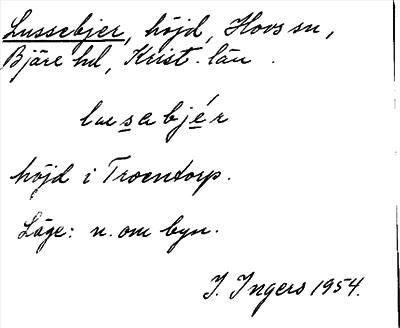 Lussebjer, höjd, Hovs sn,
Bjäre hd, Krist. län.
lusabjér
höjd i Troentorp.
Läge: n. om byn.
I. Ingers 1954.